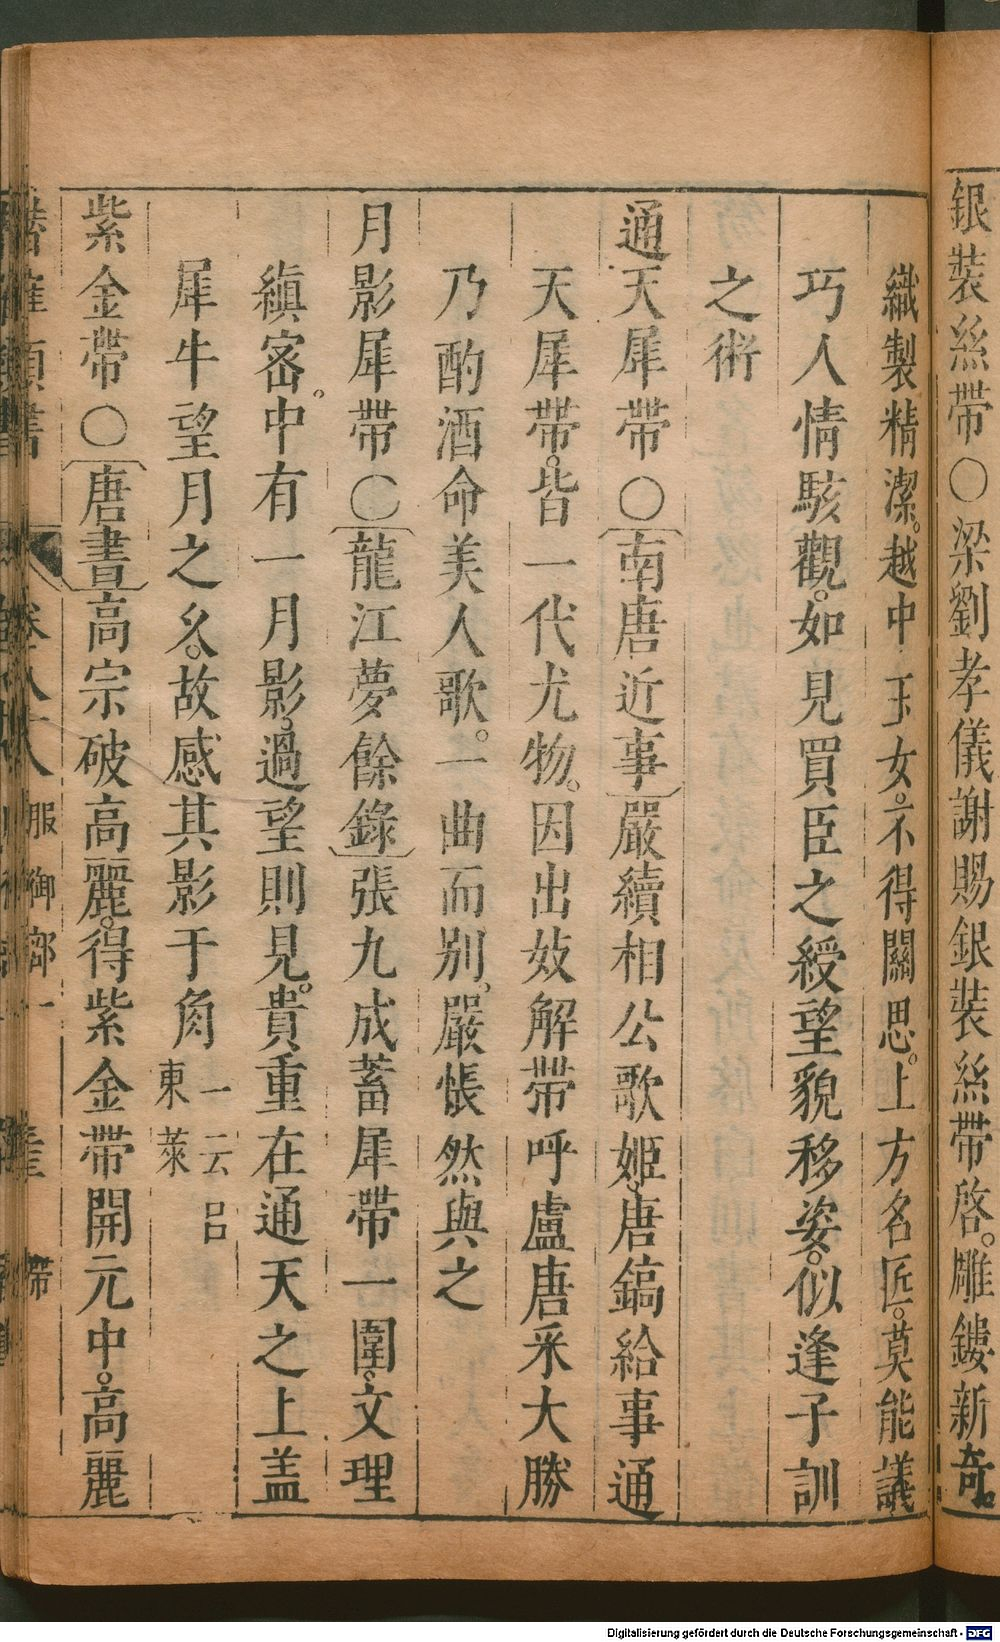 銀裝絲帶○梁劉孝儀謝賜銀裝絲帶啓。雕鏤新奇。
織製精潔。越中玉女。不得關思。上方名匠。莫能議
巧人情駭觀。如見買臣之綬望貌移姿。似逢子訓
之術
通天犀帶○南唐近事嚴續相公歌姬。唐鎬給事通
天犀帶。皆一代尤物。因出妓解帶呼盧唐采大勝
乃酌酒命美人歌。一曲而别。嚴悵然與之
月影犀帶○龍江夢餘錄張九成蓄犀帶一圍。文理
縝密。中有一月影。過望則見。貴重在通天之上盖
犀牛望月之久。故感其影于角一云呂東萊
紫金帶○唐書高宗破高麗。得紫金帶開元中。高麗
服御部一
帶
Digitalisierung gefördert durch die Deutsche Forschungsgemeinschaft - DFG